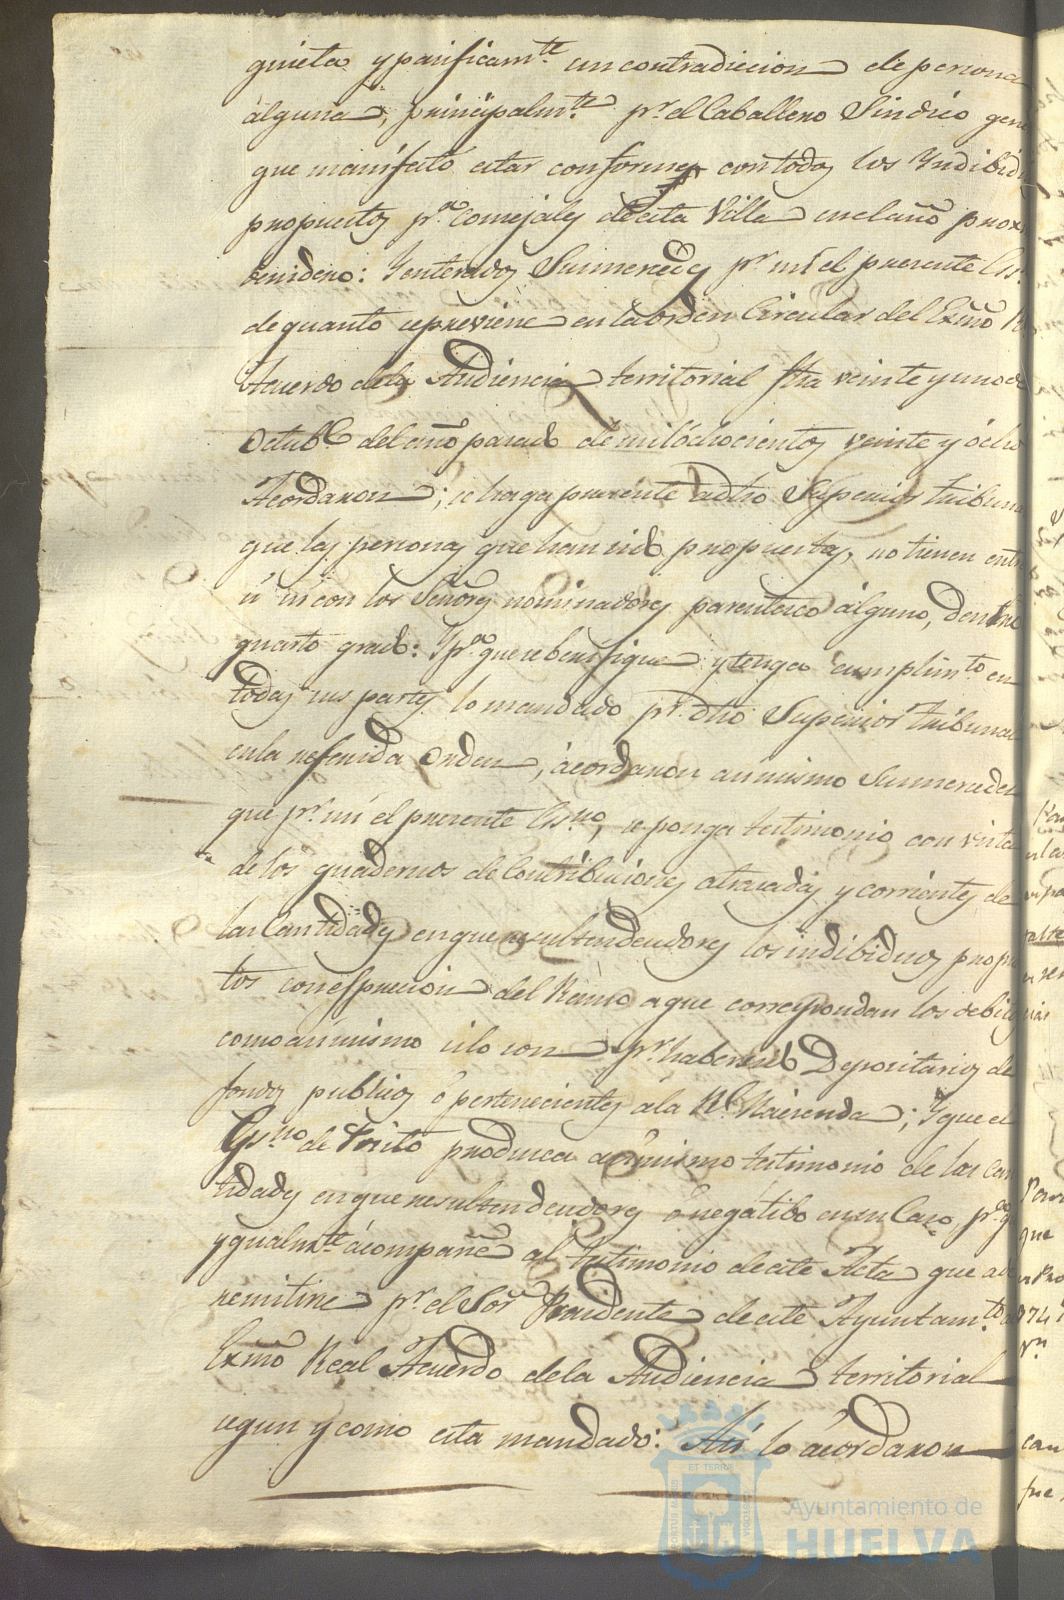 quieta y pacificamte. sin contradiccion de persona
alguna, principalmte. pr. el Caballero Sindico gen
que manifestó estar conforme con todos los Yndibid
propuestos pa. Concejales de esta Villa en el año prox
benidero: Y enterados Sus mercedes pr. mí el presente Es.
de quanto se previene en la orden Circular del Exmo R
Acuerdo de la Audiencia territorial fha veinte y uno de
Octubre del año pasado de mil ochocientos veinte y ocho
Acordaron; se haga presente a dho Superior tribuna
que las personas que han sido propuestas, no tienen entre
si ni con los Señores nominadores parentesco alguno, dentro
quarto grado: Y pa. que se berifique y tenga cumplimto. en
todas sus partes lo mandado pr. dho Superior tribunal
en la referida Orden, acordaron asimismo Sus mercedes
que pr. mi el presente Esno, se ponga testimonio con vista
de los quadernos de Contribuciones atrasadas y corrientes de
las Cantidades en que resulten deudores los indibiduos propu
tos con espresion del Ramo a que correspondan los debitos
como asimismo si lo son pr. haber sido Depositarios de
fondos publicos ó pertenecientes á la Rl. Hacienda; Y que el
Esno de Posito produzca asimismo testimonio de las can
tidades en que resulten deudores ó negatibo en su Caso, pa. q
ygualmte. acompañe al testimonio de este Acta que a de
remitirse pr. el Sor. Presidente de este Ayuntamto. al
Exmo Real Acuerdo de la Audiencia territorial
segun y como esta mandado: Asi lo acordaron
Ayuntamiento de
HUELVA